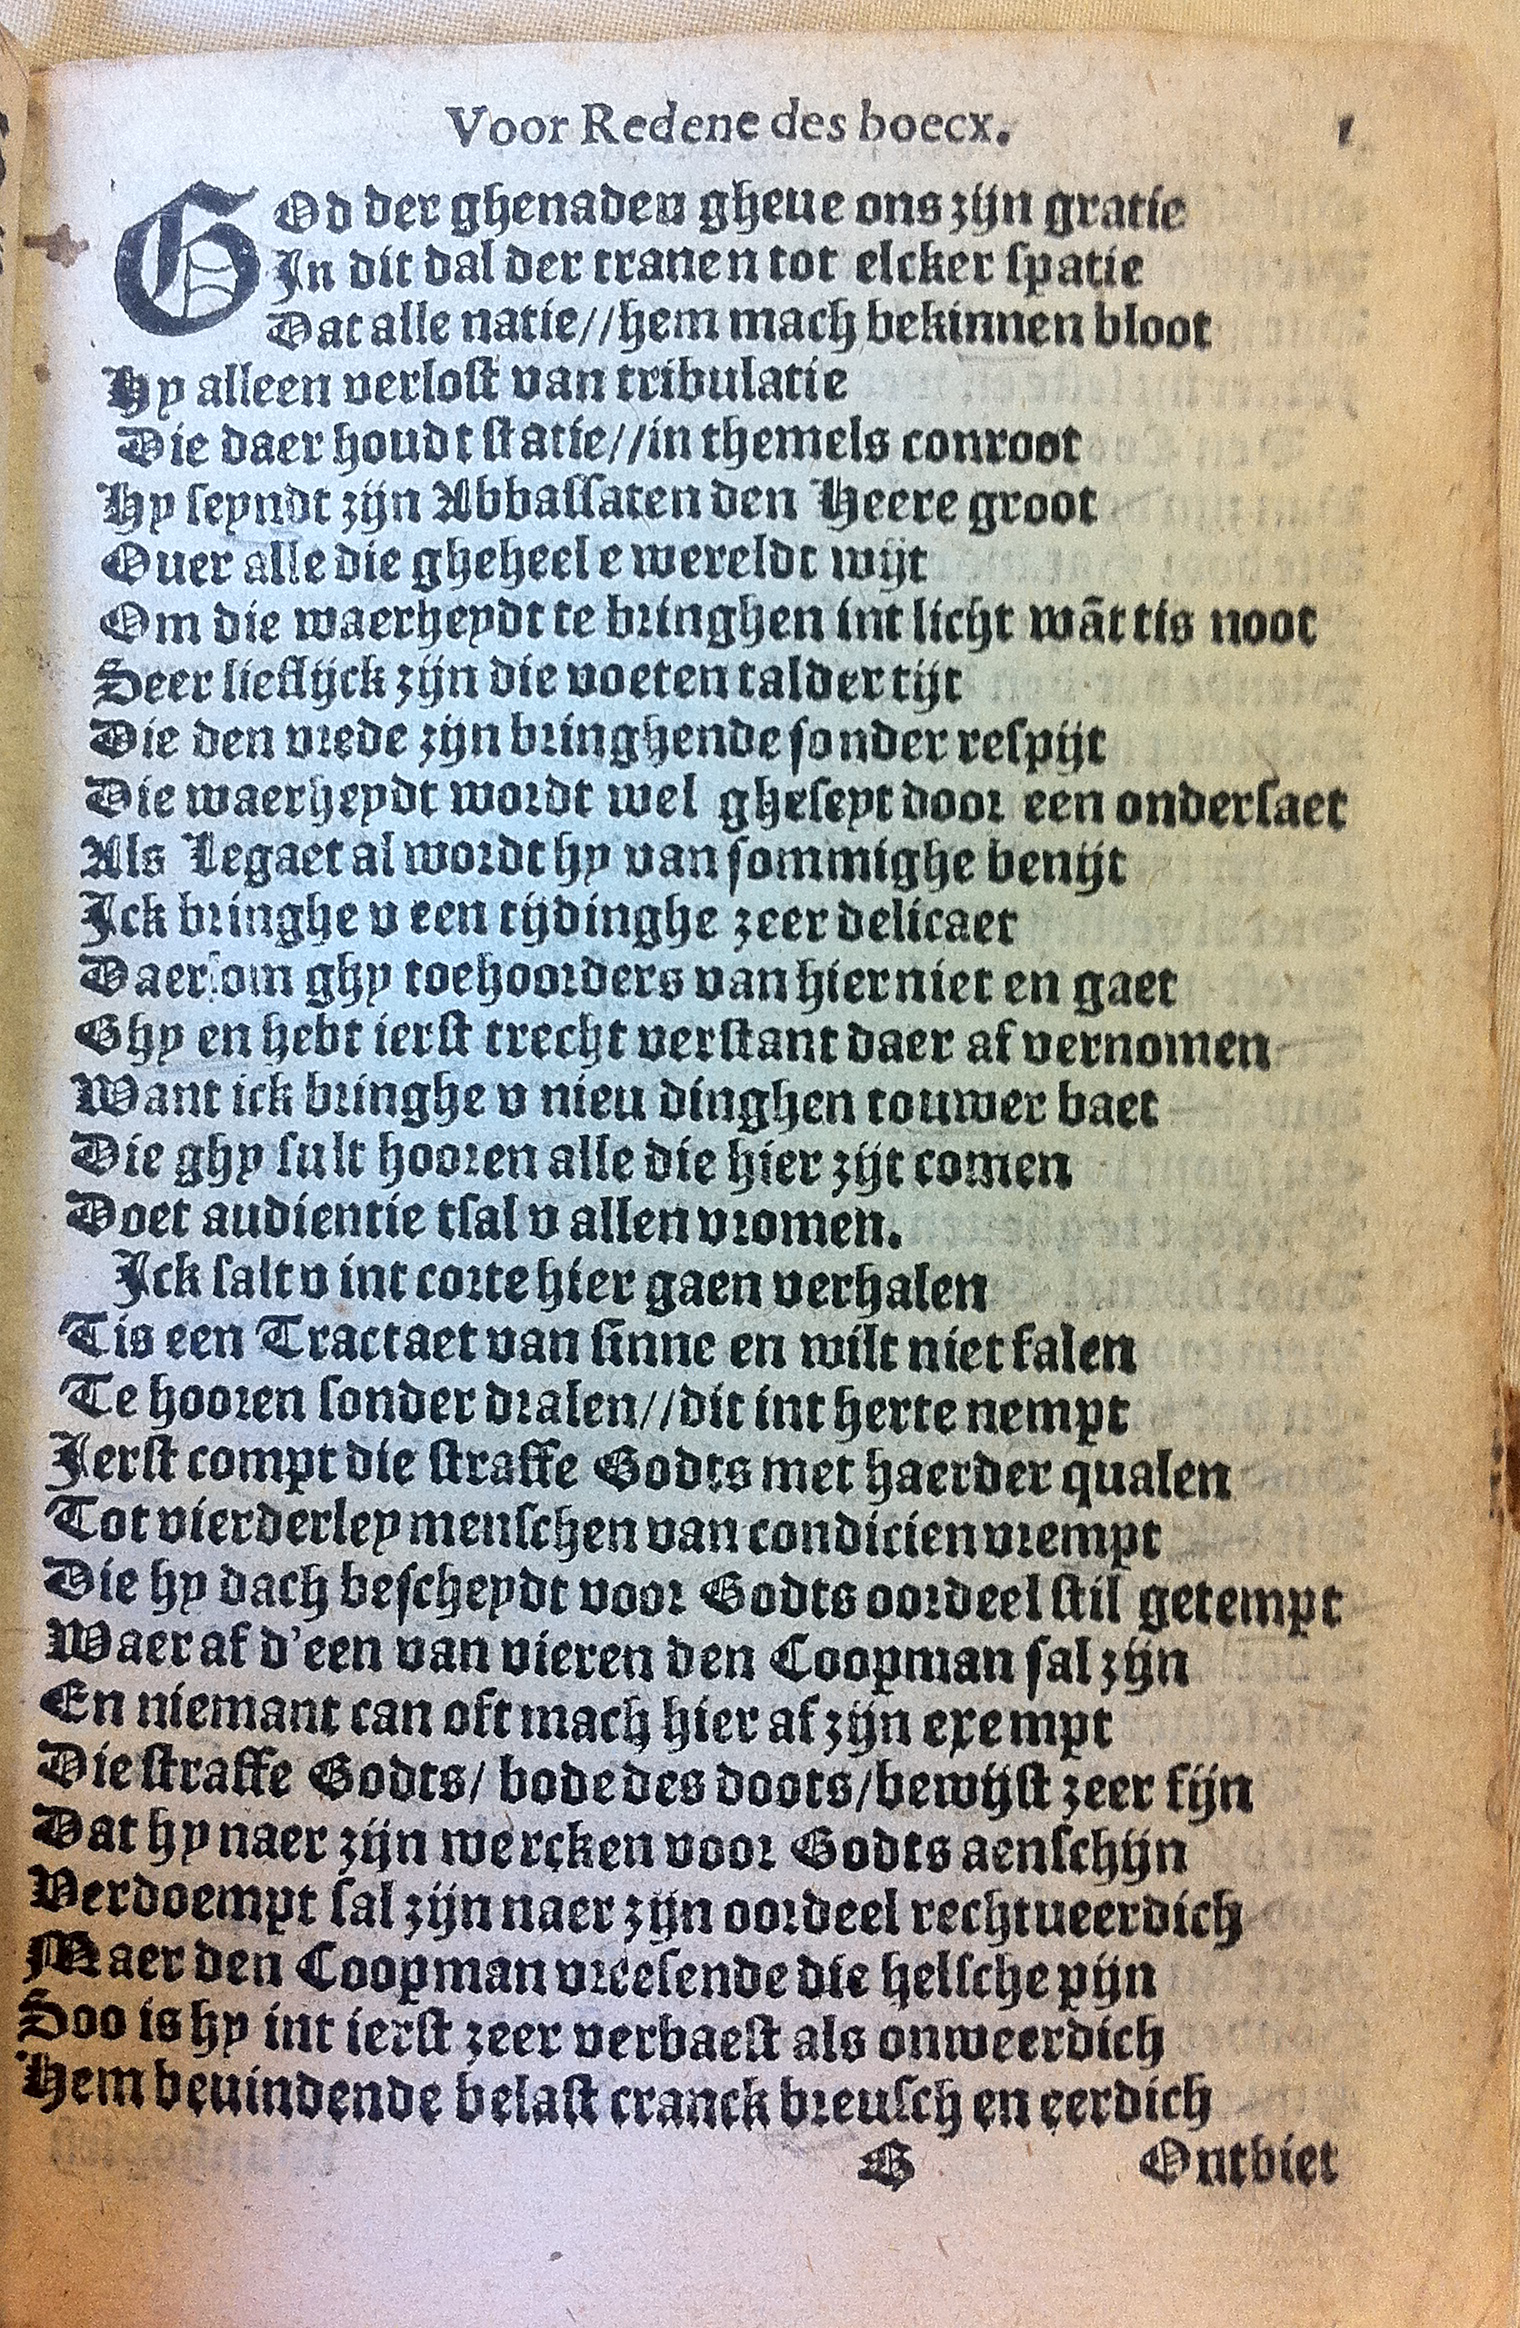 Voor Redene des boecx. 1
GOd der ghenaden gheue ons zijn gratie
In dit dal der tranen tot elcker spatie
Dat alle natie//hem mach bekinnen bloot
Hy alleen verlost van tribulatie
Die daer houdt statie//in themels conroot
Hy seyndt zijn Abbassaten den Heere groot
Ouer alle die gheheele wereldt wijt
Om die waerheydt te bringhen int licht wãt tis noot
Seer lieflijck zijn die voeten talder tijt
Die den vrede zijn bringhende sonder respijt
Die waerheydt wordt wel gheseyt door een ondersaet
Als Legaet al wordt hy van sommighe benijt
Ick bringhe v een tijdinghe zeer delicaet
Daerom ghy toehoorders van hier niet en gaet
Ghy en hebt ierst trecht verstant daer af vernomen
Want ick bringhe v nieu dinghen touwer baet
Die ghy sult hooren alle die hier zijt comen
Doet audientie tsal v allen vromen.
Ick salt v int corte hier gaen verhalen
Tis een Tractaet van sinne en wilt niet falen
Te hooren sonder dralen//dit int herte nempt
Ierst compt die straffe Godts met haerder qualen
Tot vierderley menschen van condicien vrempt
Die hy dach bescheydt voor Godts oordeel stil getempt
Waer af d'een van vieren den Coopman sal zijn
En niemant can oft mach hier af zijn exempt
Die straffe Godts/ bode des doots/bewijst zeer fijn
Dat hy naer zijn wercken voor Godts aenschijn
Verdoempt sal zijn naer zijn oordeel rechtueerdich
Maer den Coopman vreesende die helsche pijn
Soo is hy int ierst zeer verbaest als onweerdich
Hem beuindende belast cranck breusch en eerdich
G Ontbiet